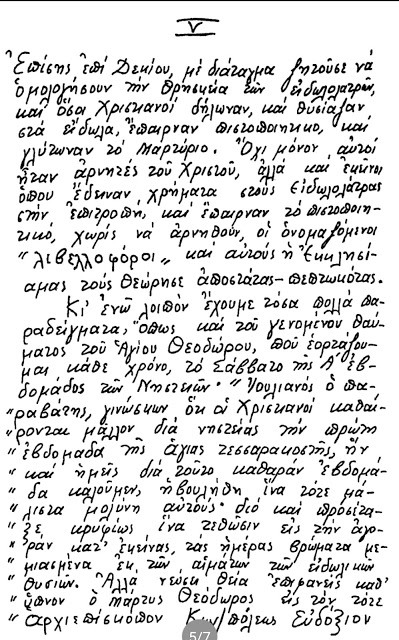 V
Ἐπίσης ἐπί Δεκίου, μέ διάταγμα ζητοῦσε νά
ὁμολογήσουν τήν θρησκεία τῶν εἰδωλολατρῶν,
καί ὅσοι Χριστιανοί δήλωναν, καί θυσίαζαν
στά εἴδωλα, ἔπαιρναν πιστοποιητικό, καί
γλύτωναν τό Μαρτύριο. Ὄχι μόνον αὐτοί
ἦταν ἀρνητές τοῦ Χριστοῦ, ἀλλά καί ἐκεῖνοι
ὅπου ἔδειναν χρήματα στούς εἰδωλολάτρας
στήν ἐπιτροπή, καί ἔπαιρναν τό πιστοποιη-
τικό, χωρίς νά ἀρνηθοῦν, οἱ ὀνομαζόμενοι
"λιβελλοφόροι" καί αὐτούς ἡ Ἐκκλησί-
α μας τούς θεώρησε ἀποστάτας - πεπτωκότας.
Κι' ἐνῶ λοιπόν ἔχουμε τόσα πολλά πα-
ραδείγματα, ὅπως καί τοῦ γενομένου θαύ-
ματος τοῦ Ἁγίου Θεοδώρου, πού ἑορτάζου-
με κάθε χρόνο, τό Σάββατο τῆς Α' ἑβ-
δομάδος τῶν Νηστειῶν. "Ἰουλιανός ὁ πα-
"ραβάτης, γινώσκων ὅτι οἱ Χριστιανοί καθαί-
"ρονται μᾶλλον διά νηστείας τήν πρώτη
"ἑβδομάδα τῆς ἁγίας τεσσαρακοστῆς, ἥν
"καί ἡμεῖς διά τοῦτο καθαράν ἑβδομά-
"δα καλοῦμεν, ἠβουλήθη ἵνα τότε μά-
"λιστα μολύνη αὐτούς· διό καί προσέτα-
"ξε κρυφίως ἵνα τεθῶσιν εἰς τήν ἀγο-
"ράν κατ' ἐκείνας τάς ἡμέρας βρώματα με-
"μιασμένα ἐκ τῶν αἱμάτων τῶν εἰδωλικῶν
"θυσιῶν. Ἀλλά νεύσει θεία ἐπιφανείς καθ'
"ὕπνον ὁ Μάρτυς Θεόδωρος εἰς τόν τότε
"Ἀρχιεπίσκοπον Κων/πόλεως Εὐδόξιον
5/7